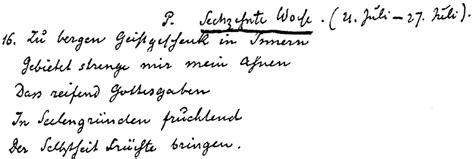 P. Sechzehnte Woche. (21. Juli – 27. Juli).
16. Zu bergen Geistgeschenk in Innern
Gebietet strenge mir mein Ahnen
Dass reifend Gottesgaben
In Seelengründen fruchtend
Der Selbstheit Früchte bringen.